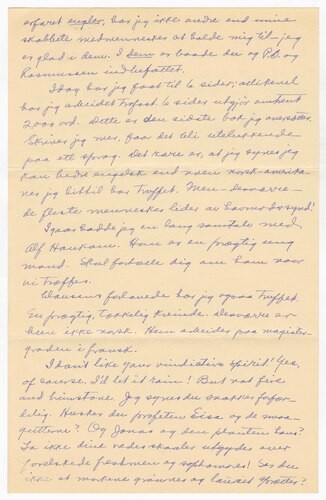 erfaret engler, har jeg ikke andre end mine
skabte medmennesker at holde mig til jeg
er glad i dem. I dem er baade du og P.b. og
Rasmussen indbefattet.
Idag har jeg faat til 6 sider; aktienel
har jeg arbeidet trofast. 6 sider utgjør omtrent
2,000 ord. Dette er den sidste bok jeg oversætter.
Skriver jeg mer, faar det bli utelukkende
paa ett sprog. Det rare er, at jeg synes jeg
kan bedre engelsk end noen norsk-amerika-
ner jeg hittil har truffet. Men - desværre -
de fleste mennesker lider av
Igaar hadde jeg en lang samtale med
Alf Haukam. Han er en prægtig ung
mand. Skal fortælle dig om ham naar
vi træffes.
Clausens forlovede har jeg ogsaa truffet.
En prægtig, tækkelig kvinde. Desværre er
hun ikke norsk. Hun arbeider paa magister-
graden i fransk.
I dont like your vindictive spirit! Yes,
of course, I'd let it rain! But not fire
and brimstone. Jeg synes du snakker forfær-
delig. Husker du profeten Elisa og de smaa-
guttene? Og Jonas og den planten hans?
La ikke dine vredes skaaler utgydes over
foreldskede freshmen og sophomores! Ser du
ikke at markene grønnes og løvet spretter?